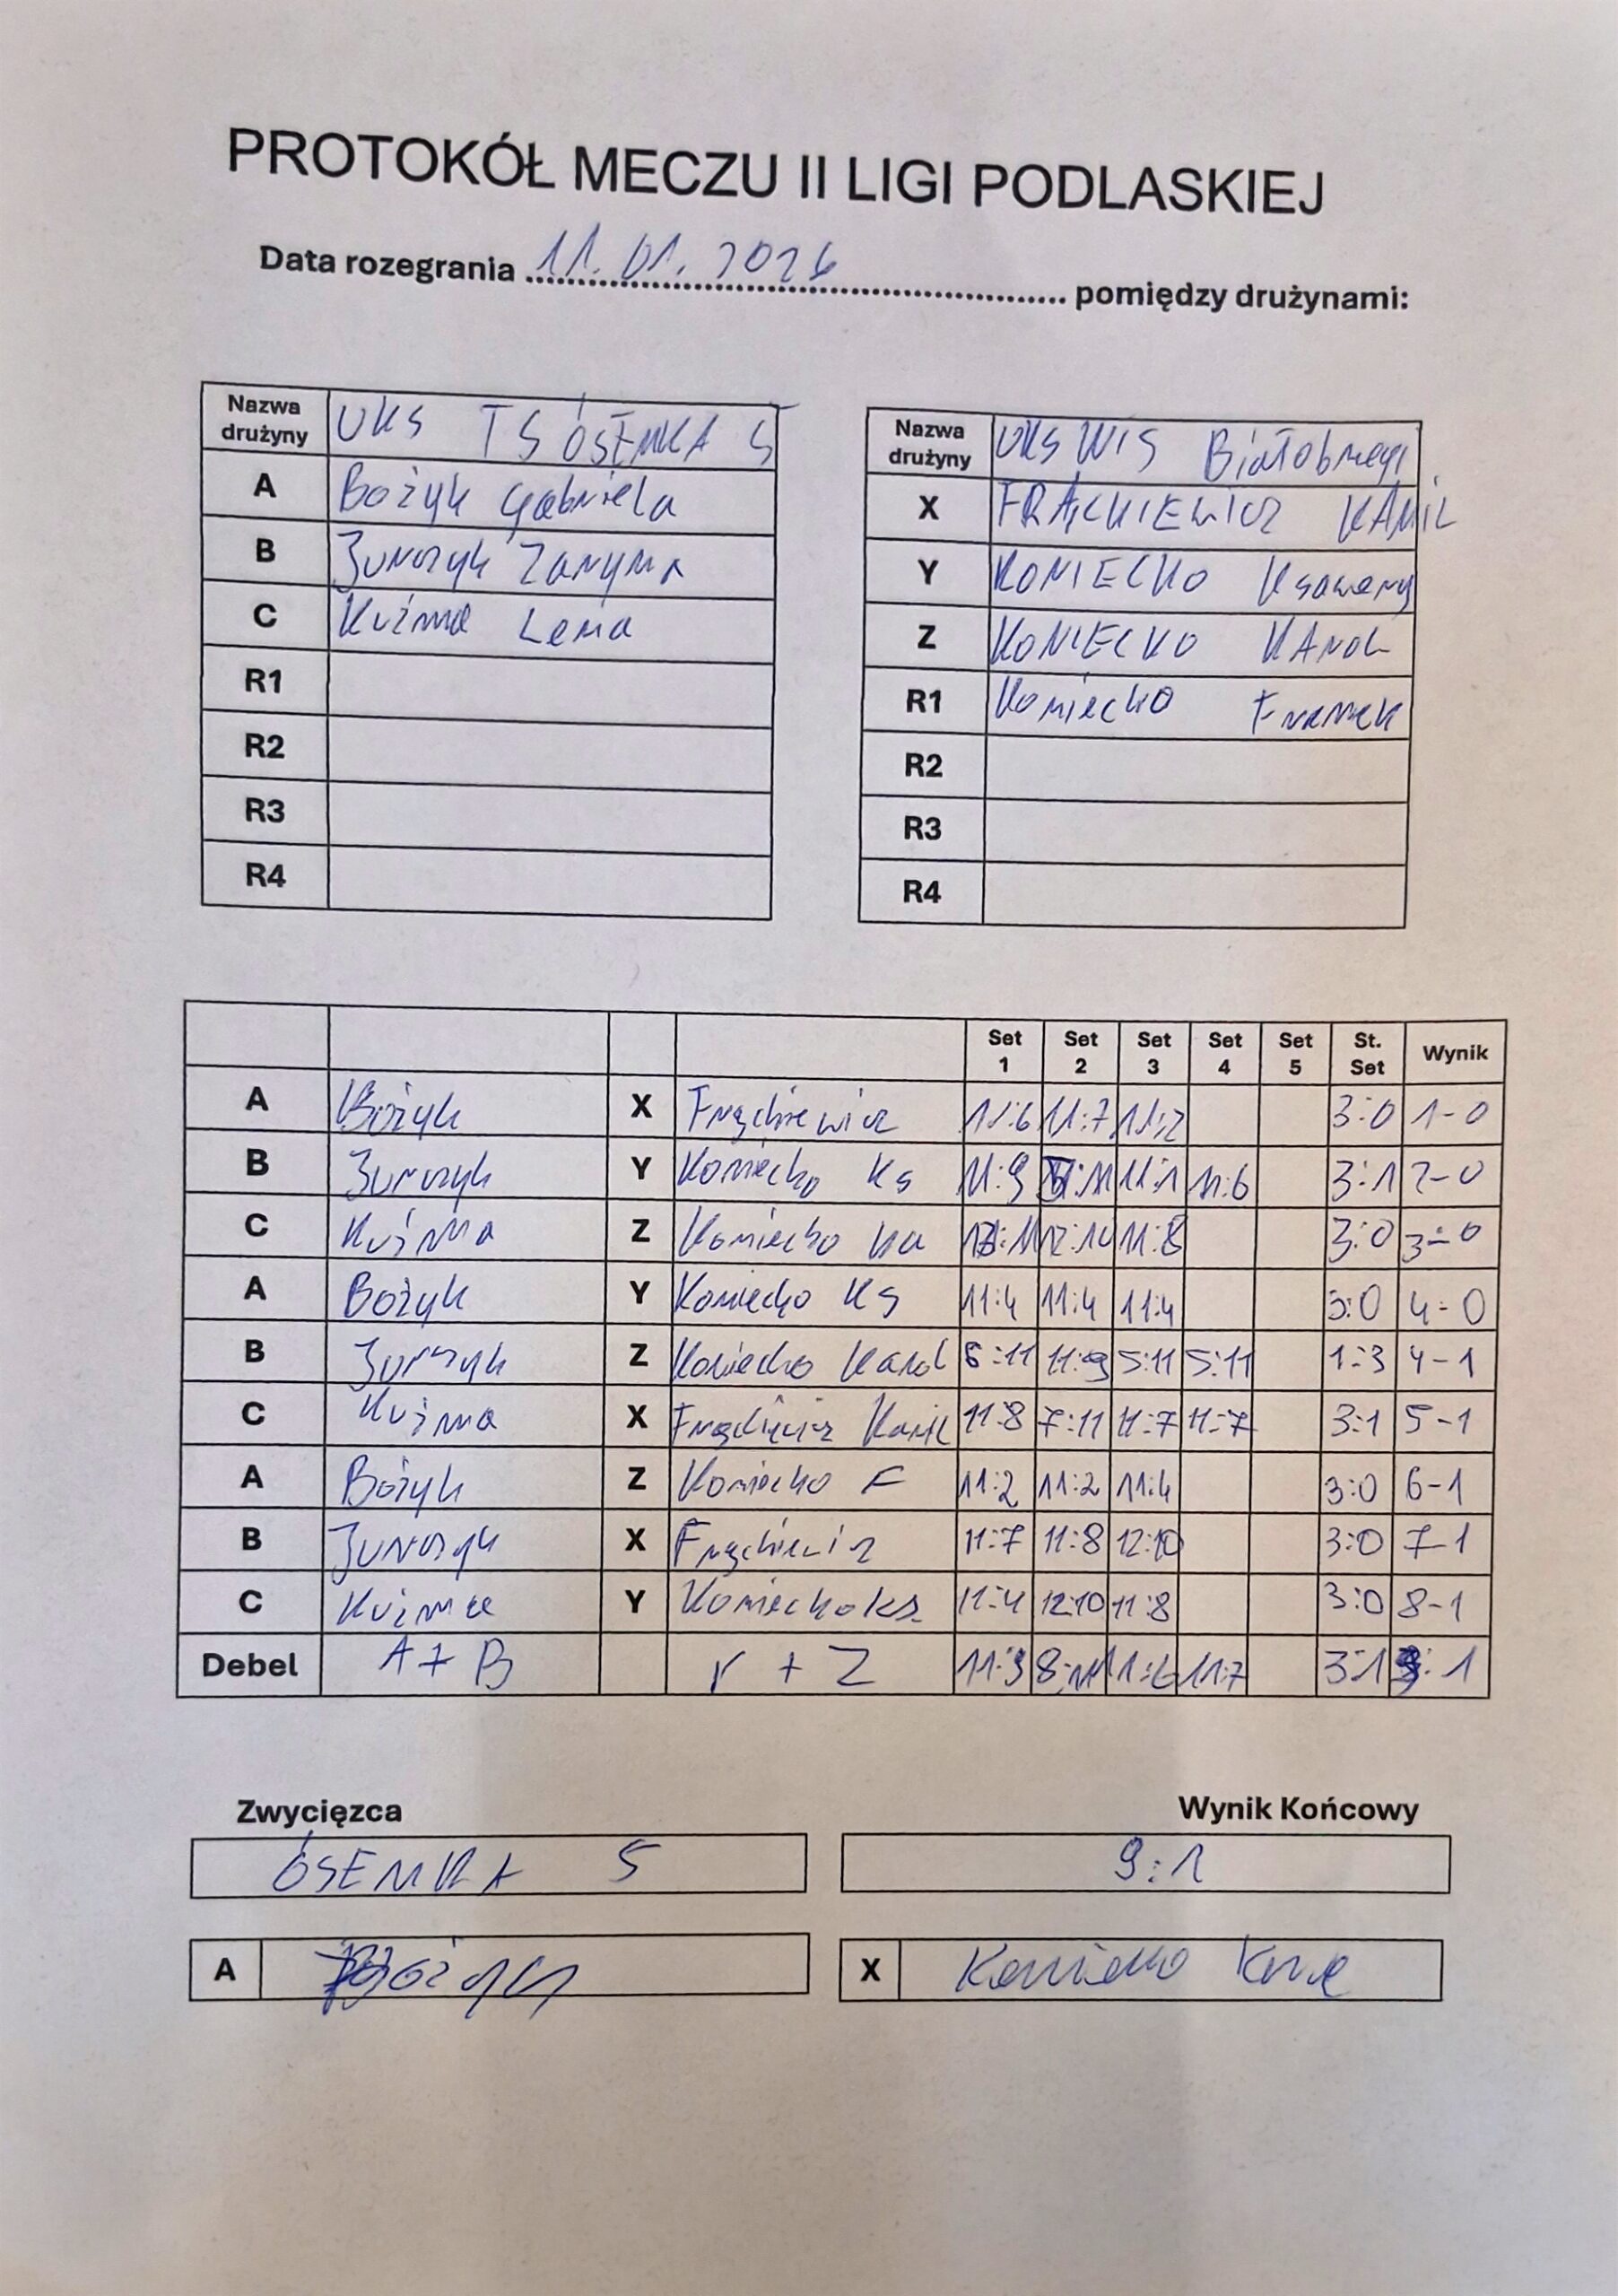 PROTOKÓŁ MECZU II LIGI PODLASKIEJ
Data rozegrania 11.01.2026 pomiędzy drużynami:
Nazwa drużyny UKS TS ÓSEMKA 5
A Bożyk Gabriela
B Zuzanna
C Kuźma Lena
R1
R2
R3
R4
Nazwa drużyny UKS WIS Białobrzegi
X FRĄCKIEWICZ KAMIL
Y KONIECKO Ksawery
Z KONIECKO KAROL
R1 Koniecko Franek
R2
R3
R4
Set 1 Set 2 Set 3 Set 4 Set 5 St. Set Wynik
A Bożyk X Frąckiewicz 11:6 11:7 11:2 3:0 1-0
B Y Koniecko Ks 11:9 11:1 11:6 3:1 2-0
C Kuźma Z Koniecko Ka 12:10 11:8 3:0 3-0
A Bożyk Y Koniecko Ks 11:4 11:4 11:4 3:0 4-0
B Z Koniecko Karol 6:11 11:9 5:11 5:11 1:3 4-1
C Kuźma X Frąckiewicz Kamil 11:8 7:11 11:7 11:7 3:1 5-1
A Bożyk Z Koniecko F 11:2 11:2 11:4 3:0 6-1
B X Frąckiewicz 11:7 11:8 12:10 3:0 7-1
C Kuźma Y Koniecko Ks. 11:4 12:10 11:8 3:0 8-1
Debel A + B + Z 8:11 11:6 11:7 3:1 9:1
Zwycięzca Wynik Końcowy
ÓSEMKA 5 9:1
A Bożyk X Koniecko